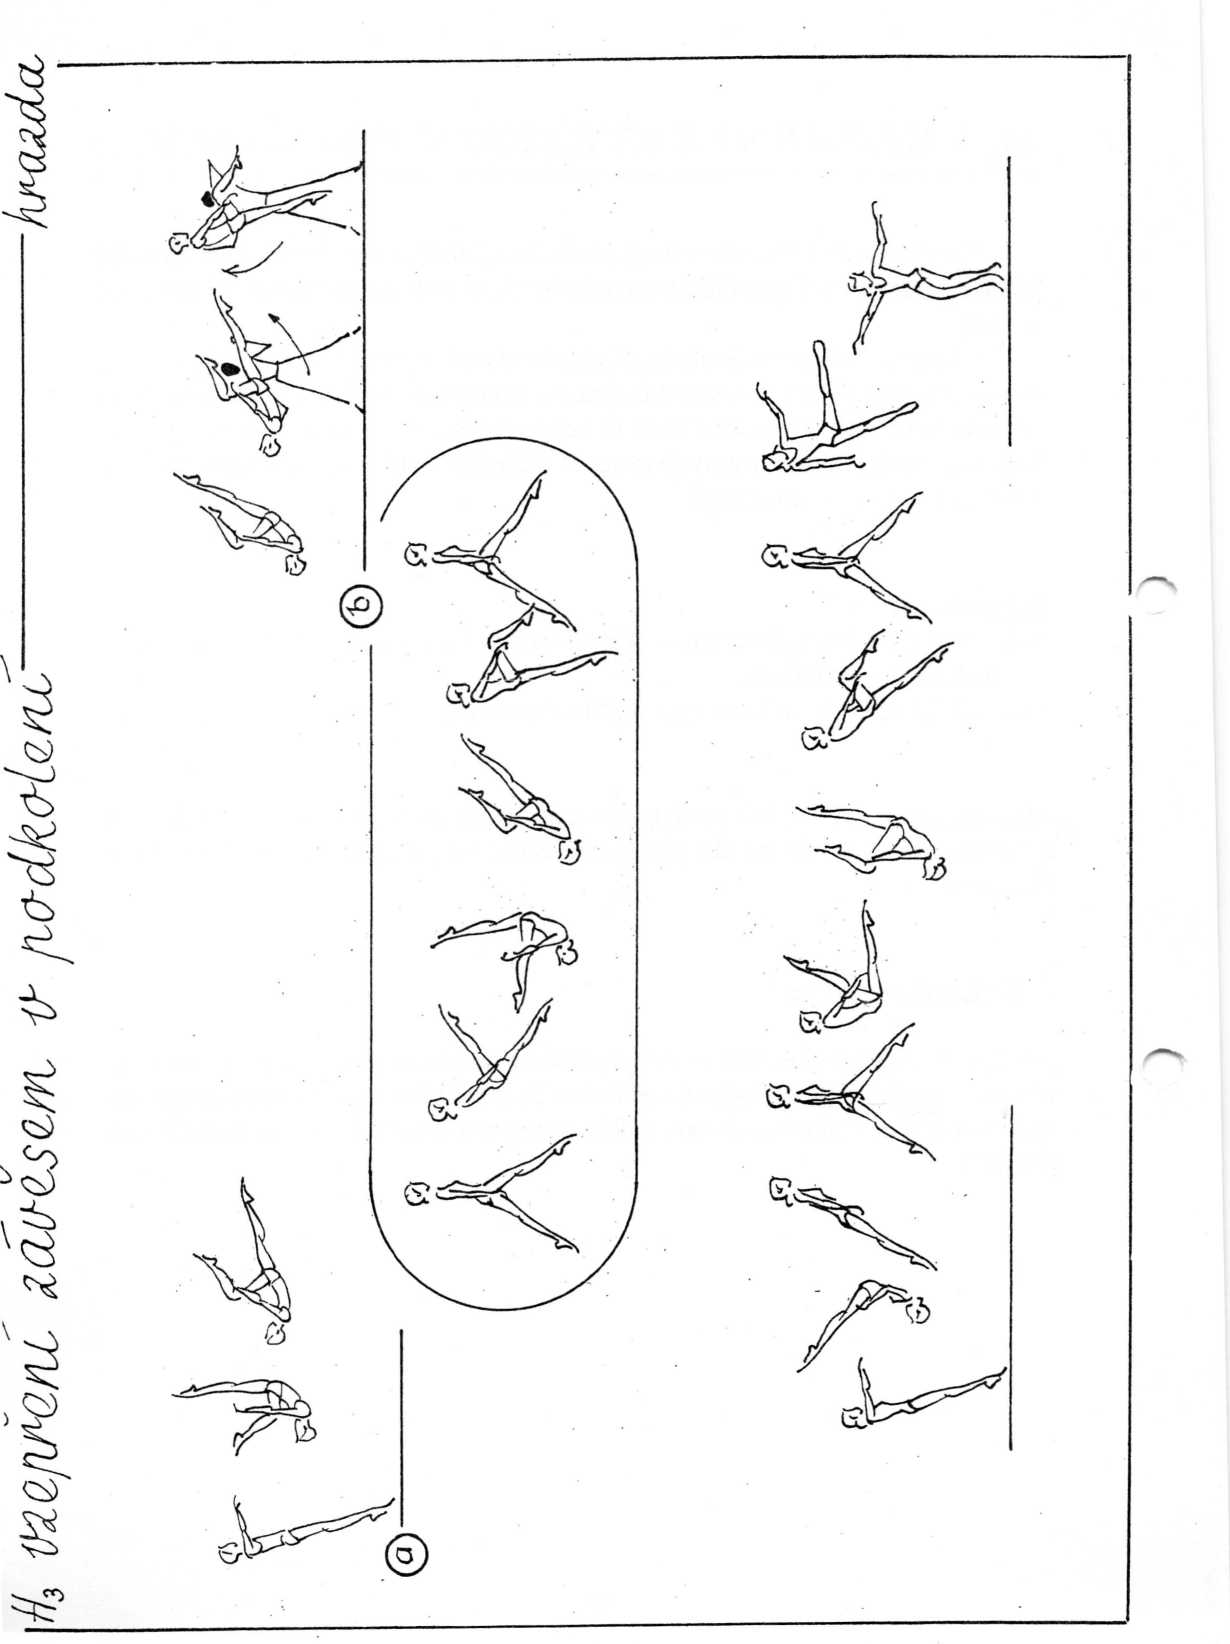 H₃ vzepření závěsem v podkolení — hrazda
a
b